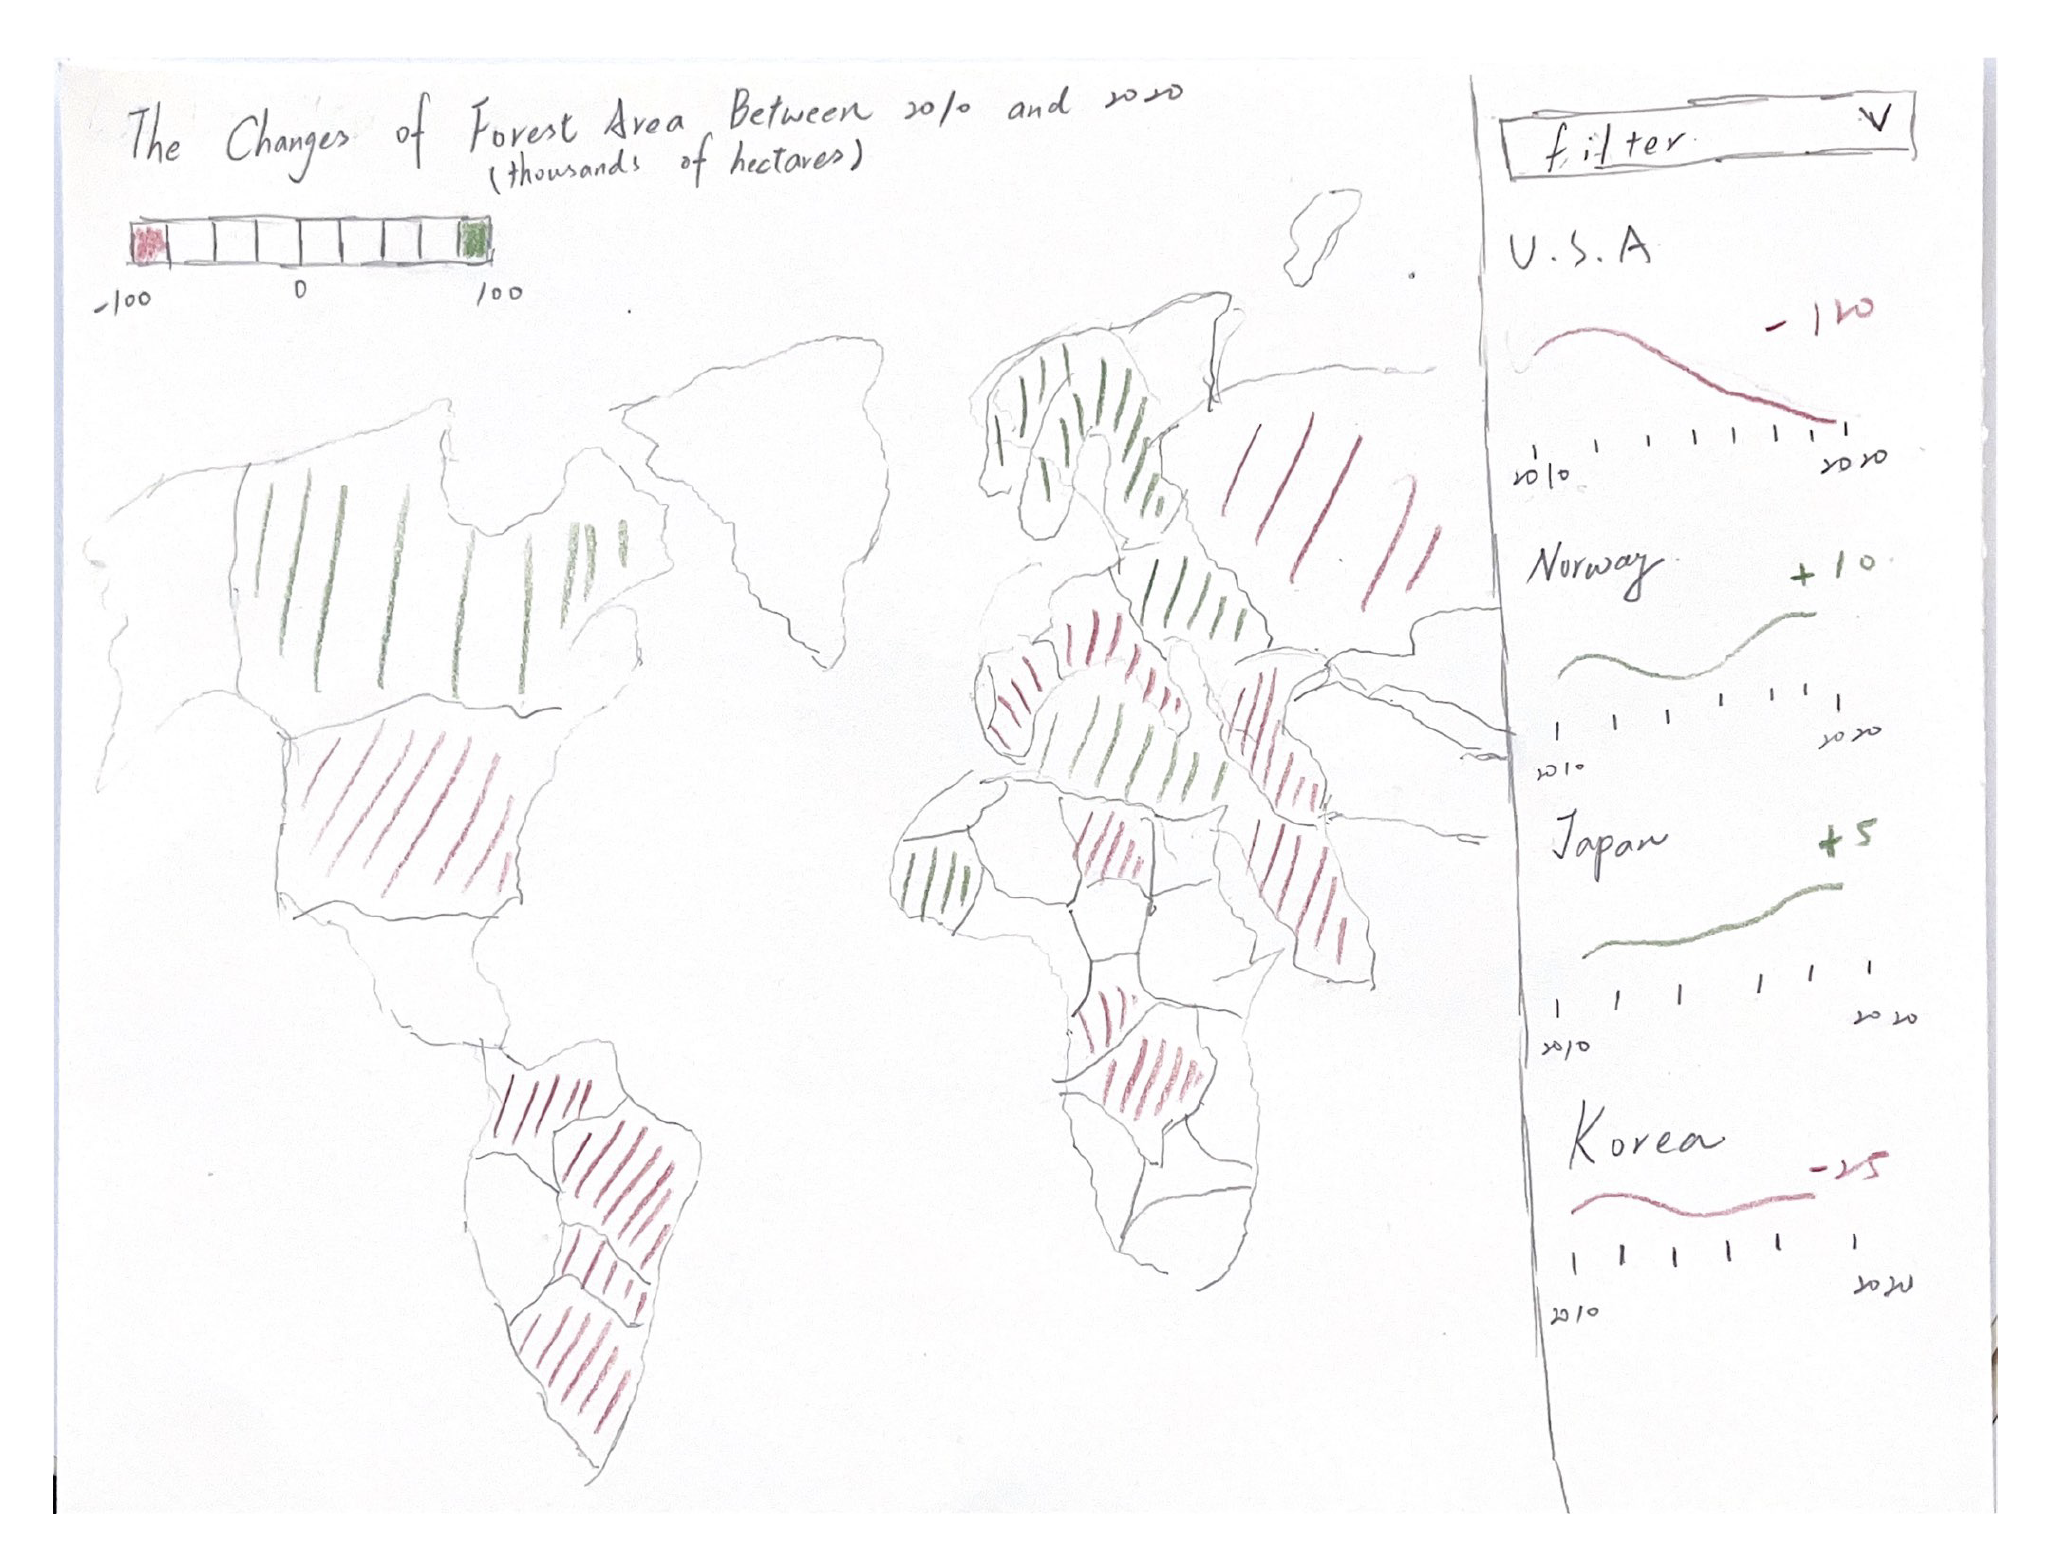 The Changes of Forest Area Between 2010 and 2020
(thousands of hectares)
-100 0 100
filter V
U.S.A
-120
2010 2020
Norway
+10
2010 2020
Japan
+5
2010 2020
Korea
-25
2010 2020